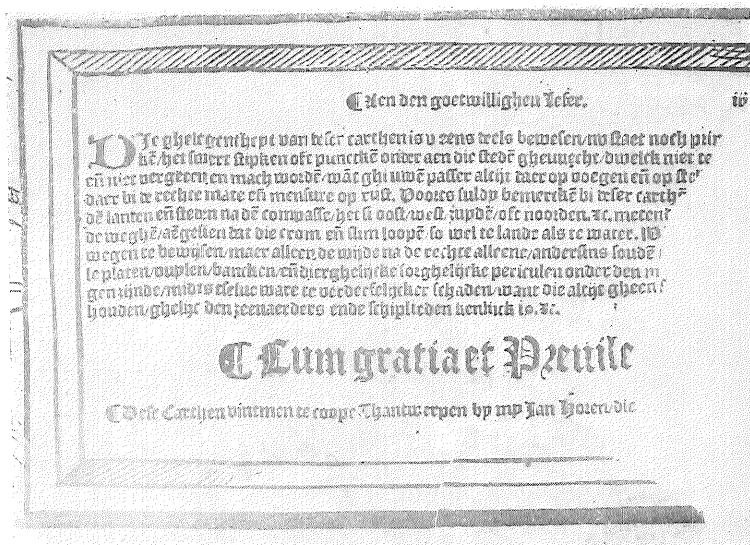 ¶ Aen den goetwillighen Leser.
DJe gheleghentheyt van deser carthen is v eens deels bewesen/nv staet noch
kẽ/het swert stipken oft punctkẽ onder aen die stedẽ ghevuecht/dwelck niet te
eñ niet vergeten en mach wordẽ/wãt ghi uwẽ passer altijt daer op voegen eñ op
daer bi de rechte mate eñ mensure op rust. Voorts suldy bemerckẽ bi deser
dẽ landen eñ steden na dẽ compasse/het si oost/west zuydẽ/oft noorden. ⁊c.
de weghẽ/aẽgesien dat die crom eñ slim loopẽ so wel te lande als te water.
wegen te bewijsen/maer alleen de wijde na de rechte alleene/andersins soudẽ
le platen/bancken/eñ dierghelijcke sorghelijcke periculen onder den
gen zijnde/midts tselue ware te verderfelijcker schaden/want die altijt gheen
houden/ghelijc den zeenaerders ende schiplieden kenlijck is. ⁊c.
¶ Cum gratia et Preuile
¶ Dese Carthen vintmen te coope Thantwerpen by my Jan /die